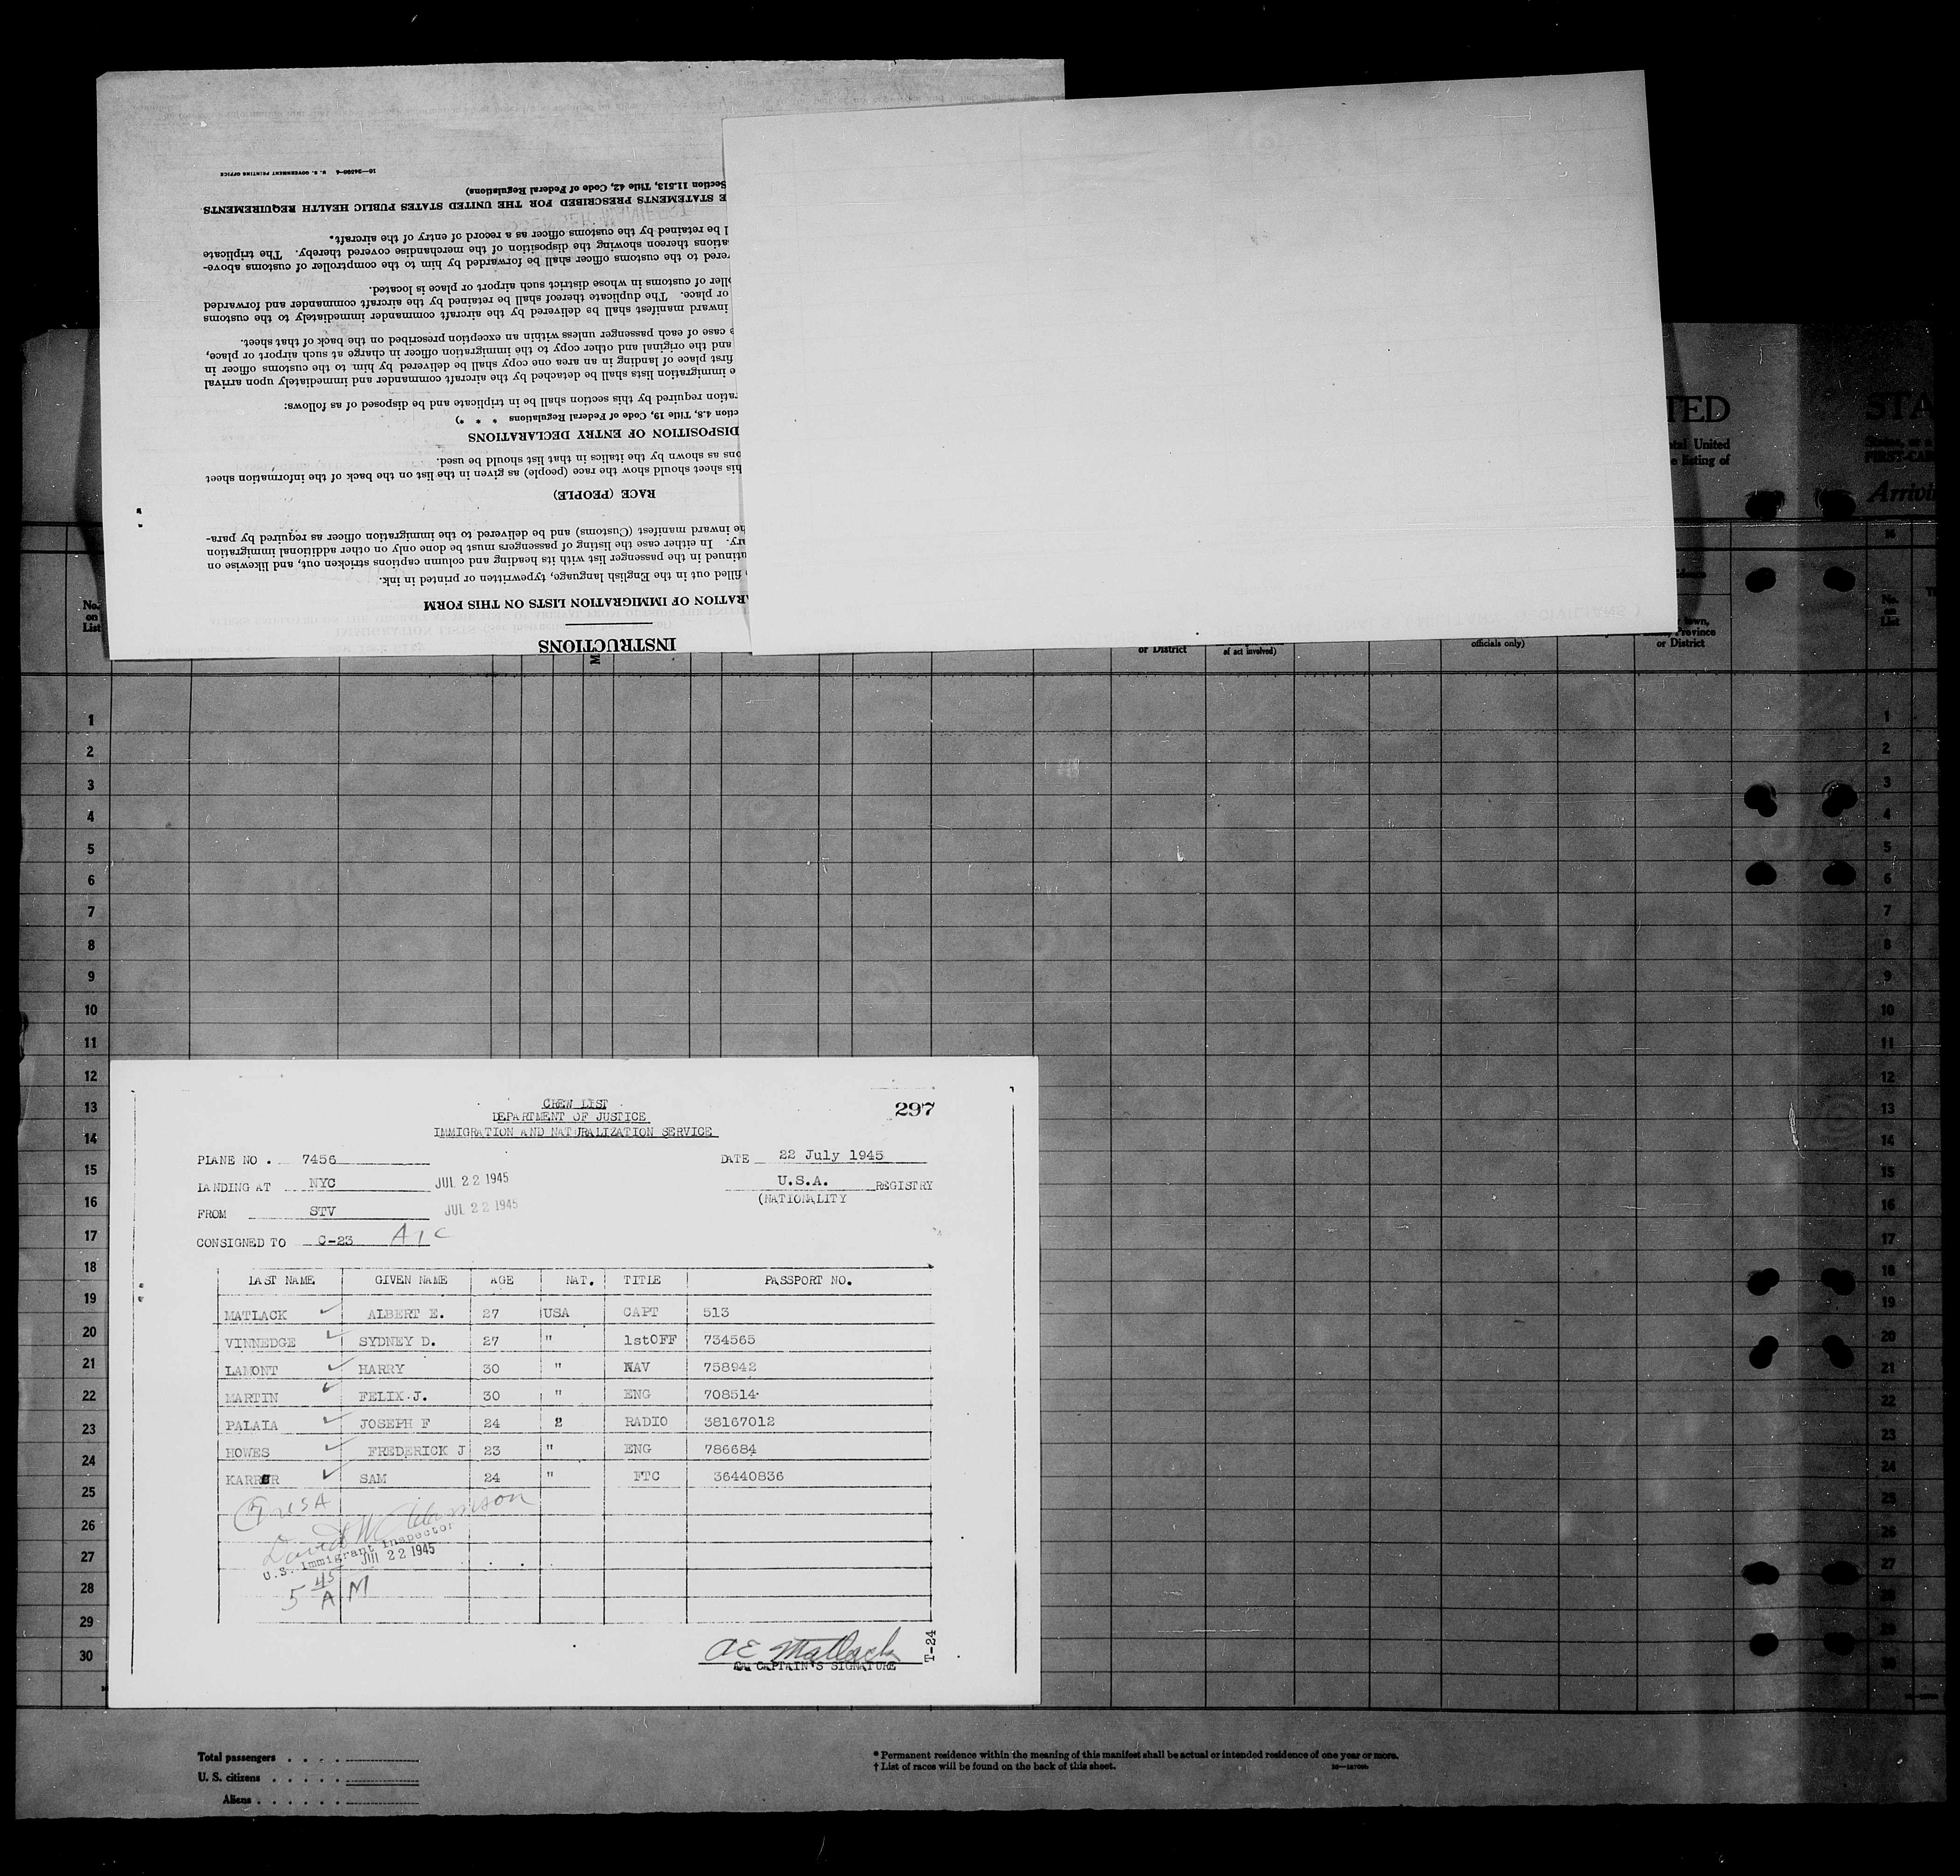 16—24598-4 U. S. GOVERNMENT PRINTING OFFICE
Section 11.513, Title 42, Code of Federal Regulations)
E STATEMENTS PRESCRIBED FOR THE UNITED STATES PUBLIC HEALTH REQUIREMENTS
l be retained by the customs officer as a record of entry of the aircraft.
ations thereon showing the disposition of the merchandise covered thereby. The triplicate
ered to the customs officer shall be forwarded by him to the comptroller of customs above-
oller of customs in whose district such airport or place is located.
or place. The duplicate thereof shall be retained by the aircraft commander and forwarded
inward manifest shall be delivered by the aircraft commander immediately to the customs
e case of each passenger unless within an exception prescribed on the back of that sheet.
and the original and other copy to the immigration officer in charge at such airport or place,
first place of landing in an area one copy shall be delivered by him to the customs officer in
e immigration lists shall be detached by the aircraft commander and immediately upon arrival
ration required by this section shall be in triplicate and be disposed of as follows:
ction 4.8, Title 19, Code of Federal Regulations * * *)
DISPOSITION OF ENTRY DECLARATIONS
ons as shown by the italics in that list should be used.
his sheet should show the race (people) as given in the list on the back of the information sheet
RACE (PEOPLE)
he inward manifest (Customs) and be delivered to the immigration officer as required by para-
ary. In either case the listing of passengers must be done only on other additional immigration
ntinued in the passenger list with its heading and column captions stricken out, and likewise on
filled out in the English language, typewritten or printed in ink.
ARATION OF IMMIGRATION LISTS ON THIS FORM
INSTRUCTIONS
TED
STA
ntal United
e listing of
FIRST-CAB
Arrivi
No. on List
M
or District
of act involved)
officials only)
town, Province or District
No. on List
1 1
2 2
3 3
4 4
5 5
6 6
7 7
8 8
9 9
10 10
11 11
12 12
13 13
14 14
15 15
16 16
17 17
18 18
19 19
20 20
21 21
22 22
23 23
24 24
25 25
26 26
27 27
28 28
29 29
30 30
CREW LIST
297
DEPARTMENT OF JUSTICE
IMMIGRATION AND NATURALIZATION SERVICE
PLANE NO. 7456 DATE 22 July 1945
LANDING AT NYC JUL 22 1945 U.S.A. REGISTRY
(NATIONALITY
FROM STV JUL 22 1945
CONSIGNED TO C-23 ATC
LAST NAME GIVEN NAME AGE NAT. TITLE PASSPORT NO.
MATLACK ✓ ALBERT E. 27 USA CAPT 513
VINNEDGE ✓ SYDNEY D. 27 " 1stOFF 734565
LAMONT ✓ HARRY 30 " NAV 758942
MARTIN ✓ FELIX J. 30 " ENG 708514
PALAIA ✓ JOSEPH F 24 2 RADIO 38167012
HOWES ✓ FREDERICK J 23 " ENG 786684
KARRER ✓ SAM 24 " FTC 36440836
7 USA
David W. Adamson
U.S. Immigrant Inspector
JUL 22 1945
5 45 AM
AE Matlack
CAPTAIN'S SIGNATURE
T-24
Total passengers . . . .
U. S. citizens . . . . .
Aliens . . . . . .
* Permanent residence within the meaning of this manifest shall be actual or intended residence of one year or more.
† List of races will be found on the back of this sheet.